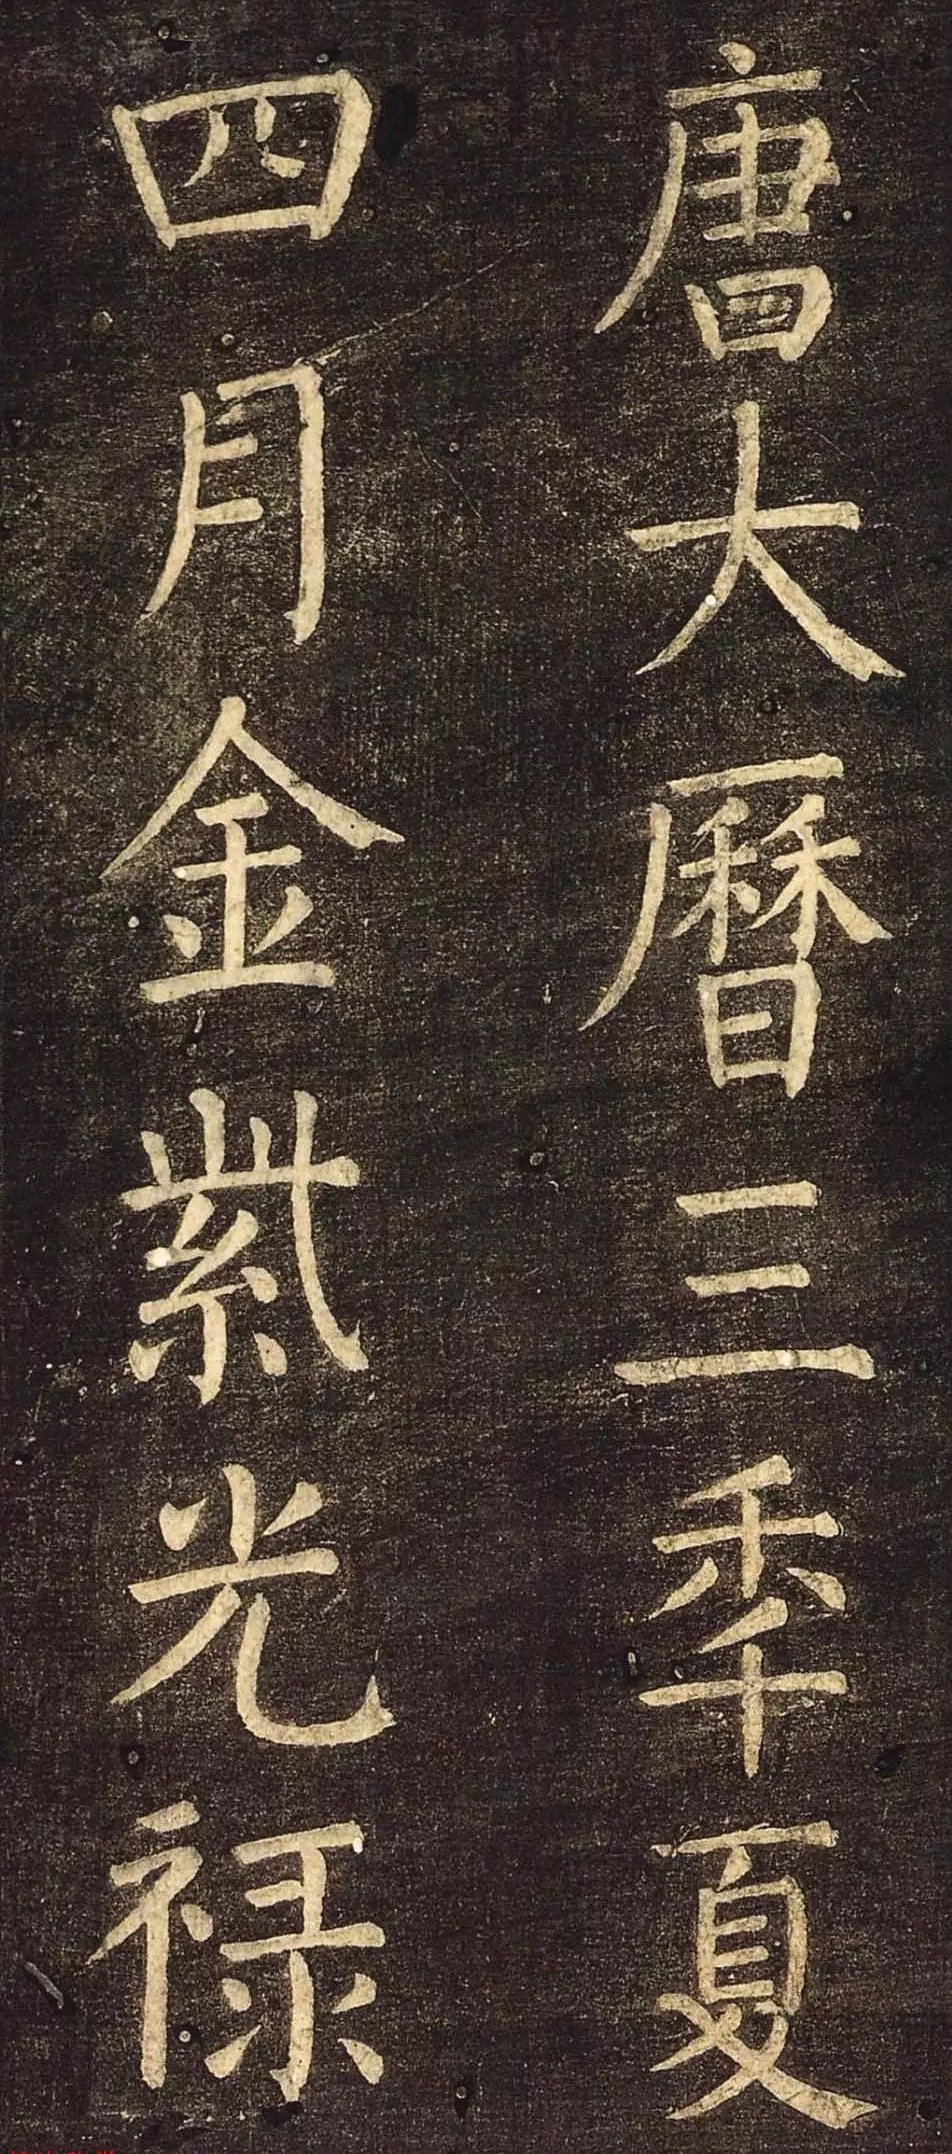 唐大曆三秊夏
四月金紫光禄